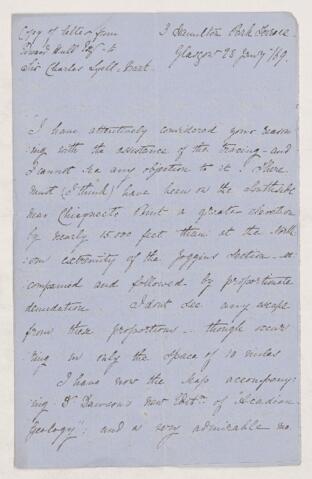 Copy of letter from
Edward Hull Esqr to
Sir Charles Lyell - Bart.
3 Hamilton Park Terrace
Glasgow 28 Jany /69.
I have attentively considered your reason
ing with the assistance of the tracing - and
I cannot see any objection to it! There
must (I think) have been on the South side
near Chiegnecto Point a greater elevation
by nearly 15000 feet than at the North
ern extremity of the Joggins Section - ac
companied and followed by proportionate
denudation. I dont see any escape
from these proportions - though occur
ring in only the space of 10 miles
I have now the Map accompany:
ing Dr Dawson's new Editn. of "Acadian
Geology": and a very admirable ma